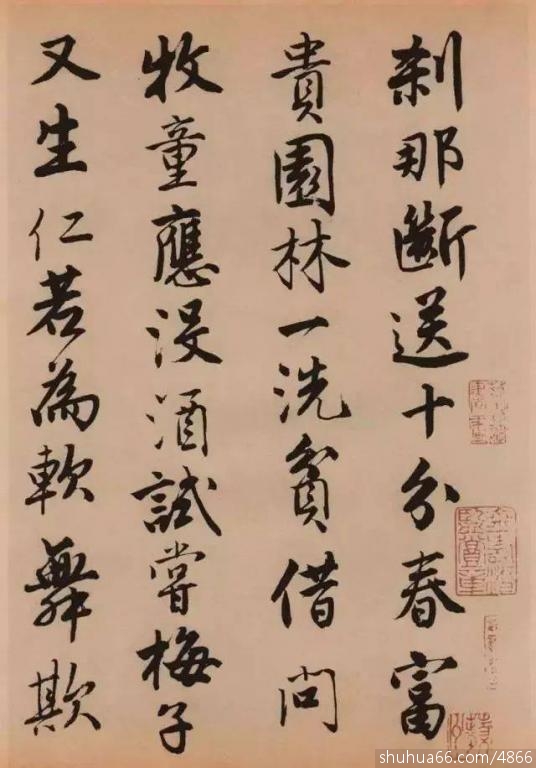 刹那斷送十分春富
貴園林一洗貧借問
牧童應沒酒試嘗梅子
又生仁若為軟舞欺
shuhua66.com/4866